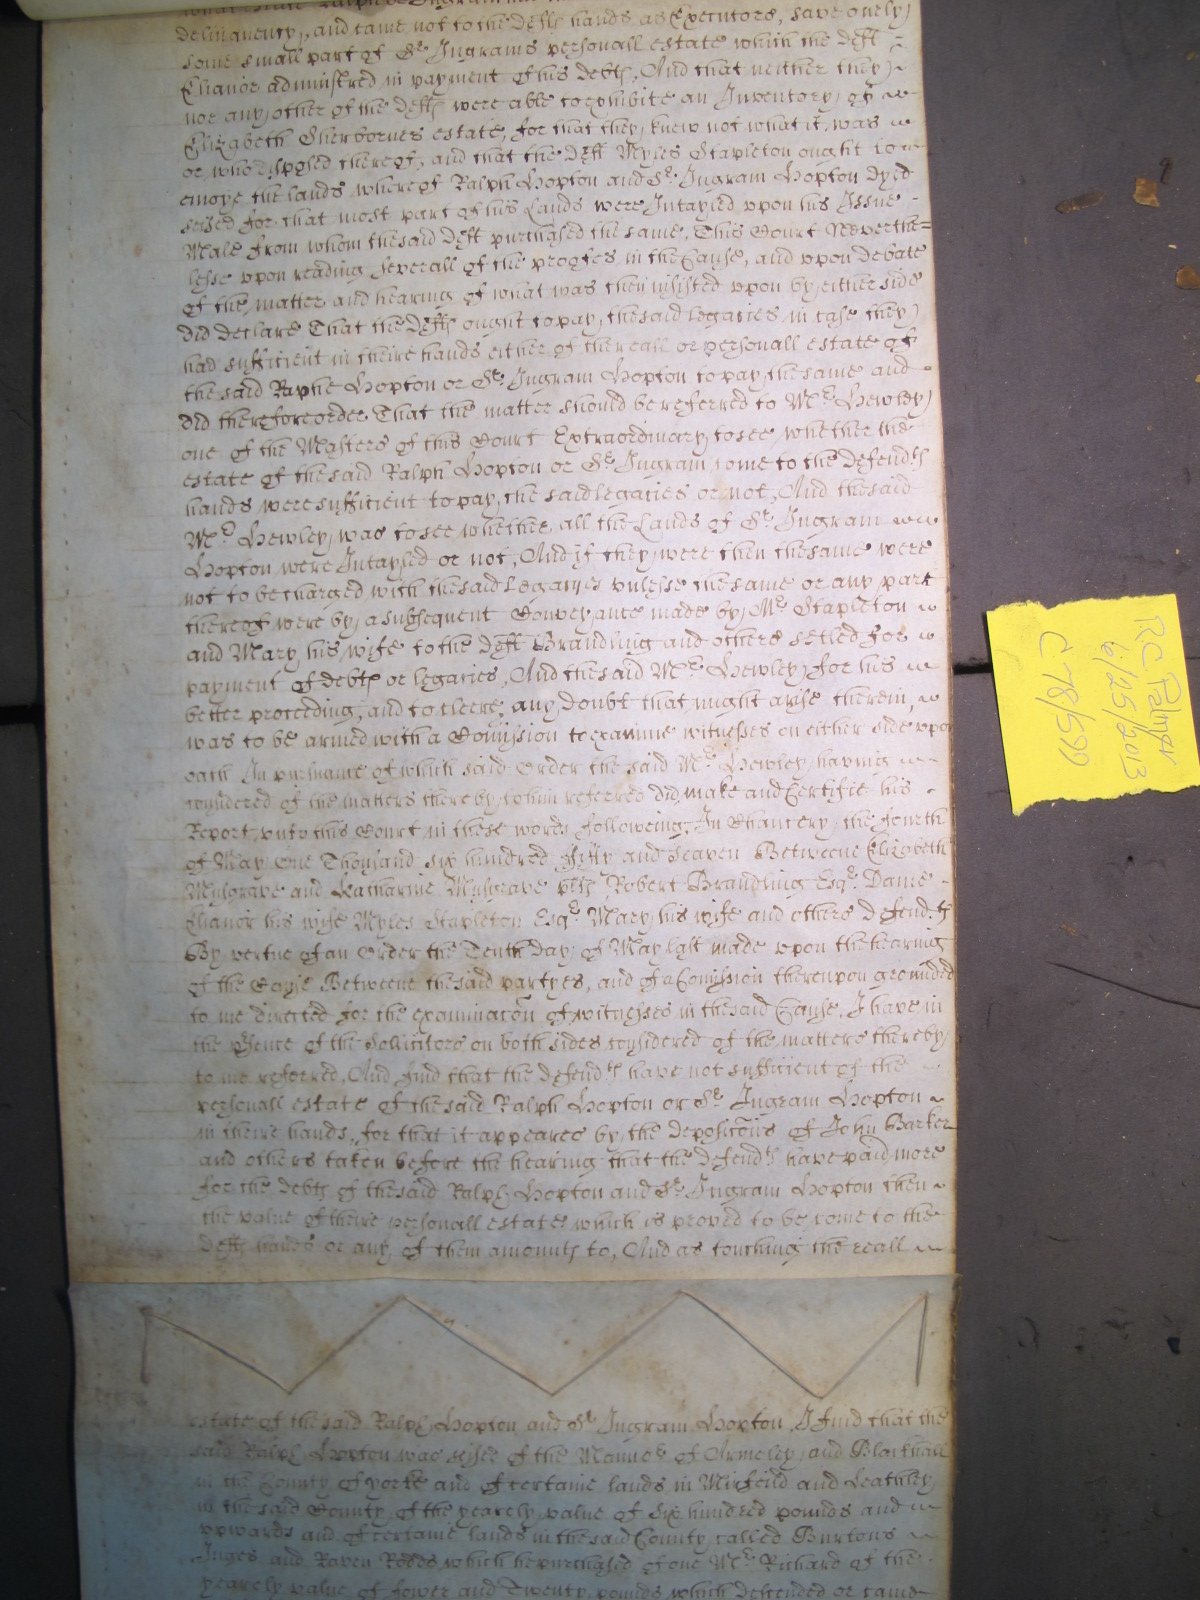 delinquency, and came not to the Defts hands as Executors, save onely
some small part of Sr Ingrams personall estate which the Deft
Elianor administred in payment of his debts, And that neither they
nor any other of the Defts were able to exhibite an Inventory of
Elizabeth Sherbornes estate, for that they knew not what it was
or who disposed thereof, and that the Deft Myles Stapleton ought to
enioye the lands whereof Ralph Hopton and Sr Ingram Hopton dyed
seized for that most part of his Lands were Intayled upon his Issue
Male from whom the said Deft purchased the same, This Court Neverthe=
lesse upon reading severall of the proofes in the Cause, and upon debate
of the matter and hearing of what was then insisted upon by either side
did declare That the Defts ought to pay the said legacies in case they
had sufficient in theire hands either of the reall or personall estate of
the said Raphe Hopton or Sr Ingram Hopton to pay the same and
did therefore order That the matter should be referred to Mr Hewley
one of the Masters of this Court Extraordinary to see whether the
estate of the said Ralph Hopton or Sr Ingram come to the defendts
hands were sufficient to pay the said legacies or not, And the said
Mr Hewley was to see whether all the Lands of Sr Ingram
Hopton were Intayled or not, And if they were then the same were
not to be charged with the said Legacyes unlesse the same or any part
thereof were by a subsequent Conveyance made by Mr Stapleton
and Mary his wife to the Deft Brandling and others setled for
payment of debts or legacies, And the said Mr Hewley for his
better proceeding, and to cleere any doubt that might arise therein,
was to be armed with a Comission to examine witnesses on either side upon
oath In pursuance of which said Order the said Mr Hewley having
considered of the matters thereby to him referred did make and Certifie his
Report unto this Court in these words following, In Chancery the fourth
of May One Thousand six hundred fifty and seaven Betweene Elizabeth
Musgrave and Katharine Musgrave plts Robert Brandling Esqr Dame
Elianor his wife Myles Stapleton Esqr Mary his wife and others defendts
By vertue of an Order the Tenth day of May last made upon the hearing
of the Cause Betweene the said partyes, and of a Comission thereupon grounded
to me directed for the examinacon of witnesses in the said Cause, I have in
the psence of the sollicitors on both sides considered of the matters thereby
to me referred, And find that the defendts have not sufficient of the
personall estate of the said Ralph Hopton or Sr Ingram Hopton
in theire hands, for that it appeares by the depositons of John Barker
and others taken before the hearing that the defendts have paid more
for the debts of the said Ralph Hopton and Sr Ingram Hopton then
the value of theire personall estate which is proved to be come to the
Defts hands or any of them amounts to, And as touching the reall
estate of the said Ralph Hopton and Sr Ingram Hopton, I find that the
said Ralph Hopton was seised of the Mannor of Armeley and
in the County of yorke and of certaine lands in Mirfeild and Leathley
in the said County of the yearely value of six hundred pounds and
upwards and of certaine lands in the said County called Burtons
Inges and Raven which he purchased of one Mr Richard of the
yearely value of fower and Twenty pounds which descended or came
RC Palmer
6/25/2013
C 78/599